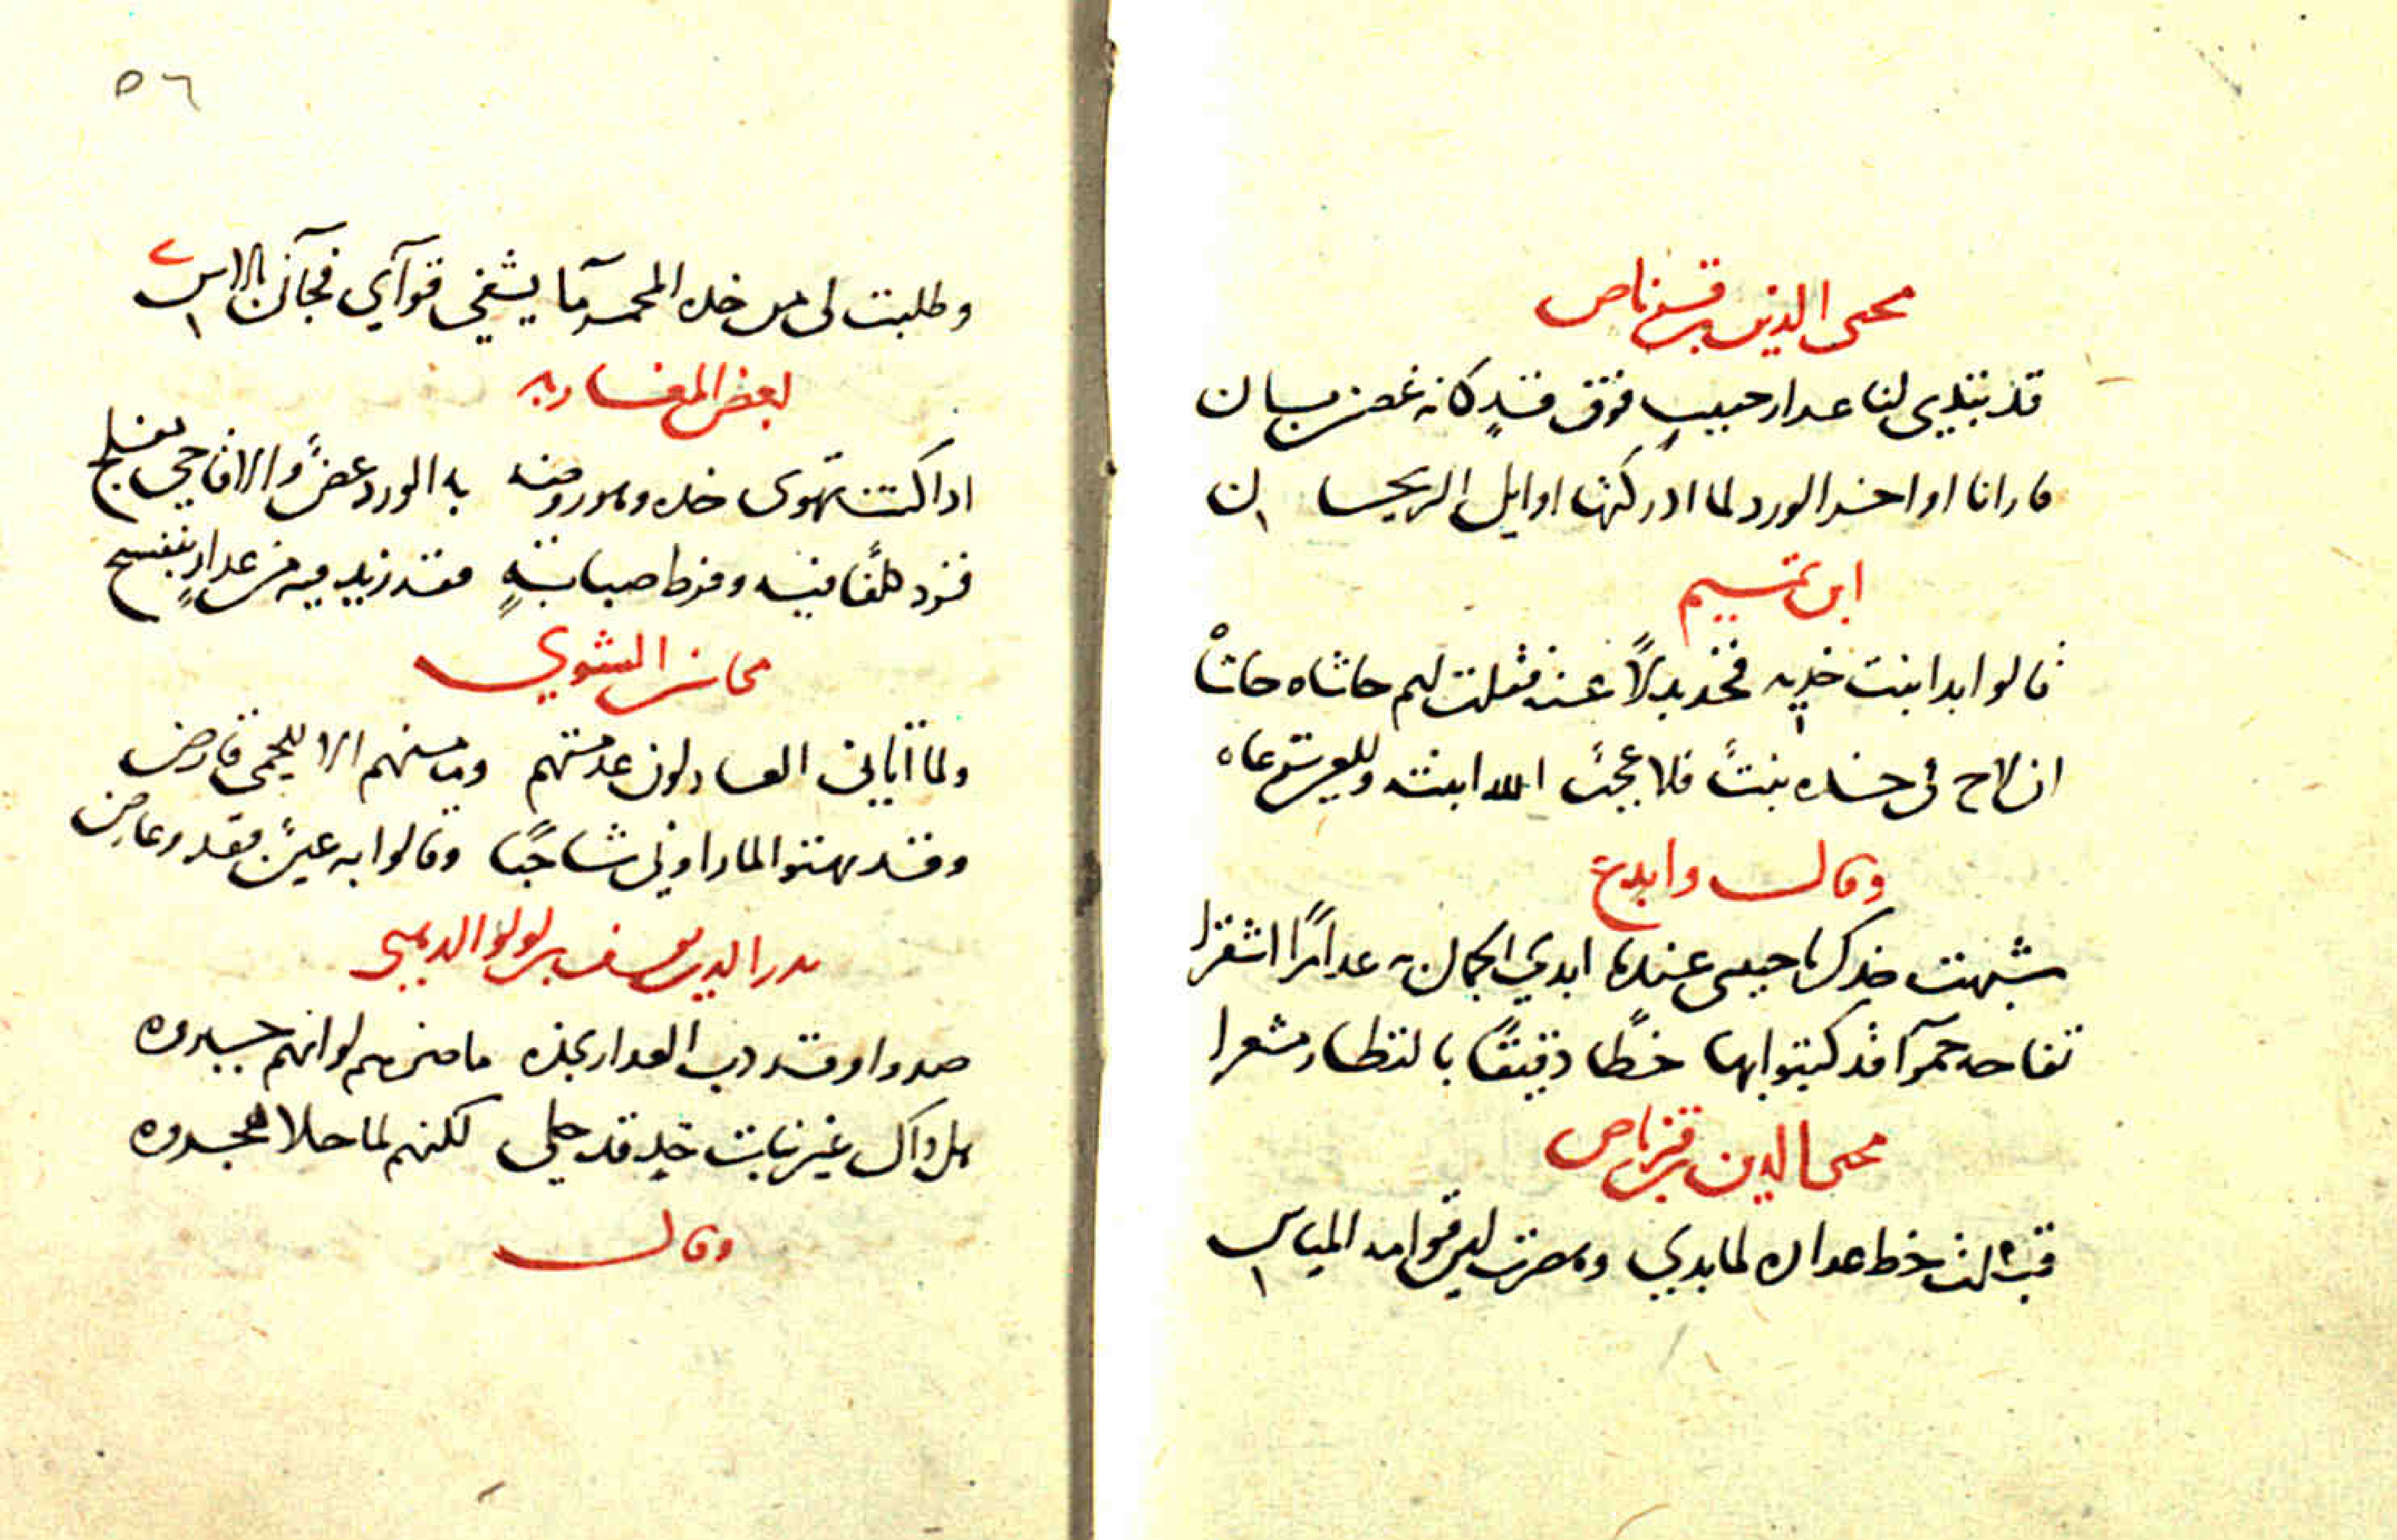 محيى الدين بن قرناص
قد بتدي لنا عدار حبيب فوق قد كانه غصن بان
فارانا اواخر الورد لما ادركتها اوايل الريحان
ابن تميم
قالوا بدا نبت خديه فخذ بدلاً عنه فقلت لهم حاشاه حاشاه
ان لاح في خده نبتً فلا عجبً الله انبته
وقال وابدع
شبهت خدك يا حبيبي عندما ابدي الجمال به عدارًا اشقرا
تفاحه حمرآ قد كتبوا بها خطًا دقيقًا بالنظار مشعرا
محيى الدين بن قرناص
خط عداره لما بدي قوامه المياس
٥٦
وطلبت لى من خده المحمر ما يشفي فجآني بالاس
بعض المغاربه
اداكنت تهوى خده وهو روضه به الورد غضً والاقاحي مفلج
فزد كلفًا فيه وفرط صبابةٍ فقد زيد فيه من عدارٍ بنفسج
محاسن الشوي
ولما اتاني العادلون عدمتهم وما منهم الا للحمي قارض
وقد بهتوا لما راوني شاحبًا وقالوا به عينً فقلت وعارض
بدر الدين يوسف بن لولو الدهبي
صدوا وقد دب العدار بخده ما ضرهم لو انهم جبروه
هل داك غير نبات خدٍ قد حلي لكنهم لما حلا هجروه
وقال